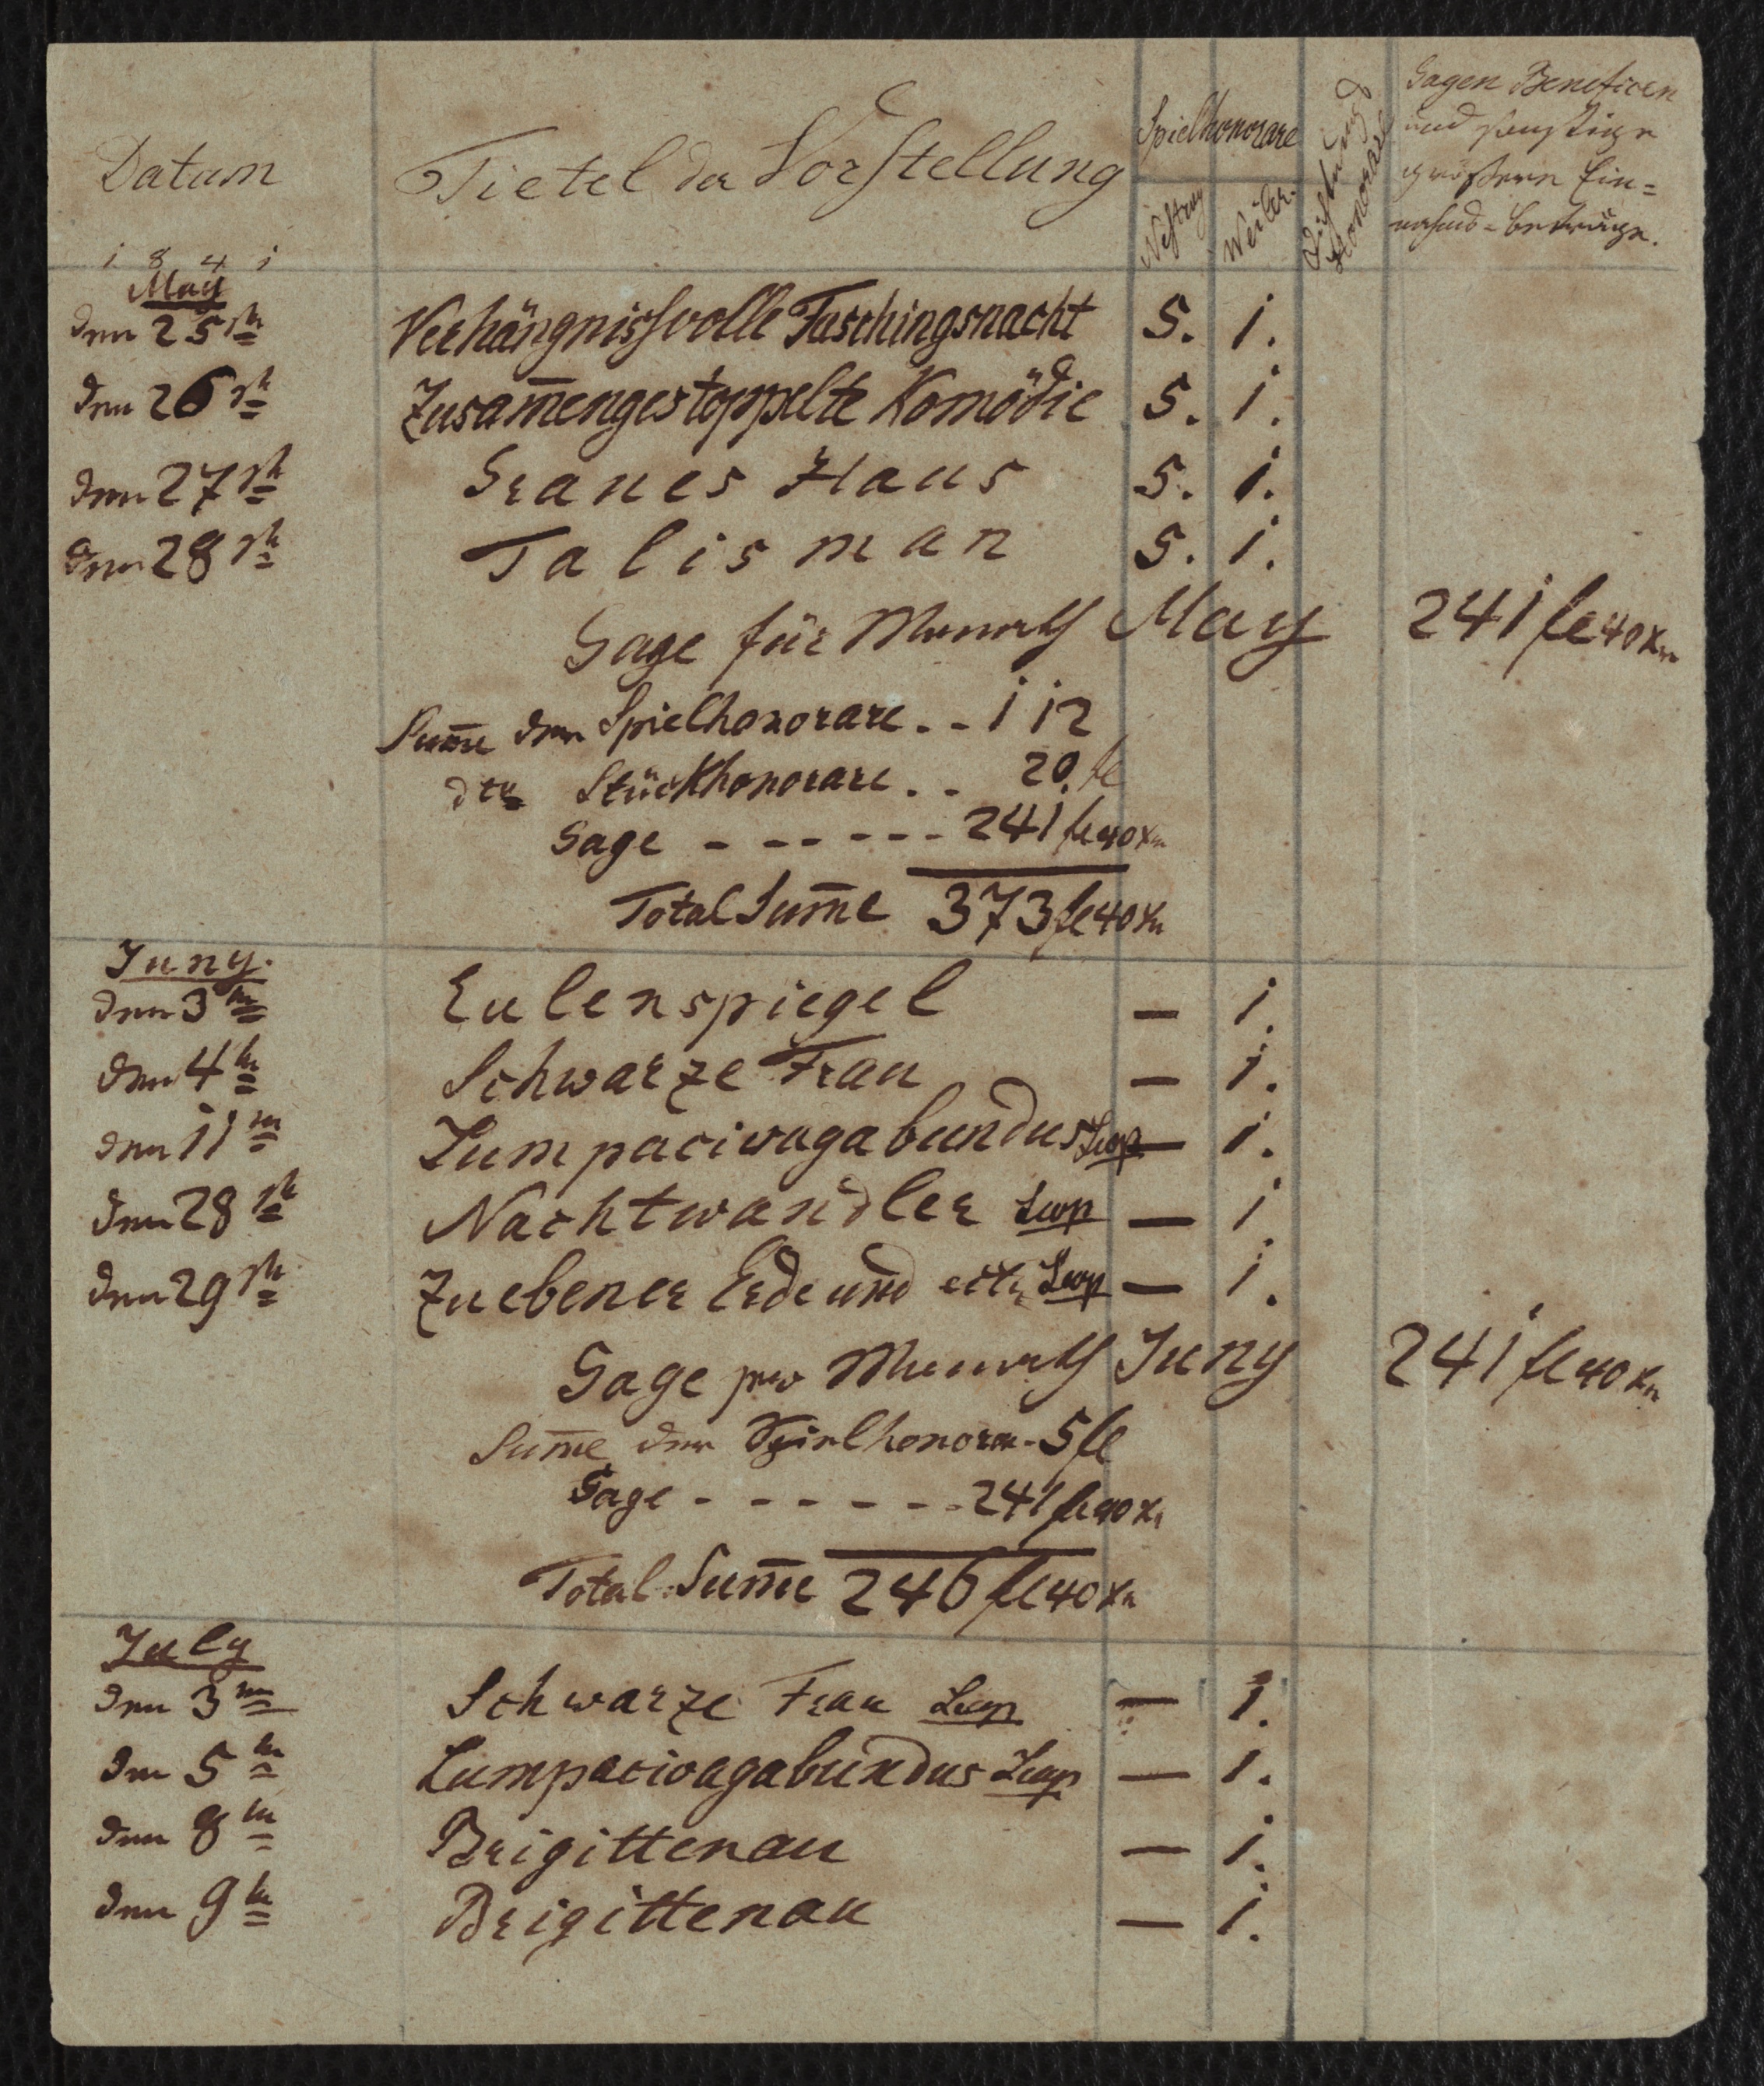 Datum
Tietel der Vorstellung
Spielhonorare
Nestroy
Weiler.
Dichtungs Honorare
Gagen Beneficen
und sonstige
größere Ein=
nahms-beträge.
1 8 4 1
May
den 25st Verhängnissvolle Faschingsnacht 5. 1.
den 26st Zusam̅engestoppelte Komödie 5. 1.
den 27st Graues Haus 5. 1.
den 28st Talisman 5. 1.
Gage für Monath May 241 fl 40 xr
Sum̅e der Spielhonorare . . 112
dto Stückhonorare . . 20. fl
Gage - - - - - - 241 fl 40 xr
Total Sum̅e 373 fl 40 xr
Juny.
den 3tn Eulenspiegel — 1.
den 4tn Schwarze Frau — 1.
den 11tn Lumpacivagabundus Leop — 1.
den 28st Nachtwandler Leop — 1.
den 29st Zu ebener Erde und ectr Leop — 1.
Gage pro Monath Juny 241 fl 40 xr
Sum̅e der Spielhonorar - 5 fl
Gage - - - - - - - 241 fl 40 xr
Total Sum̅e 246 fl 40 xr
July
den 3tn Schwarze Frau Leop — 1.
den 5tn Lumpacivagabundus Leop — 1.
den 8tn Brigittenau — 1.
den 9tn Brigittenau — 1.